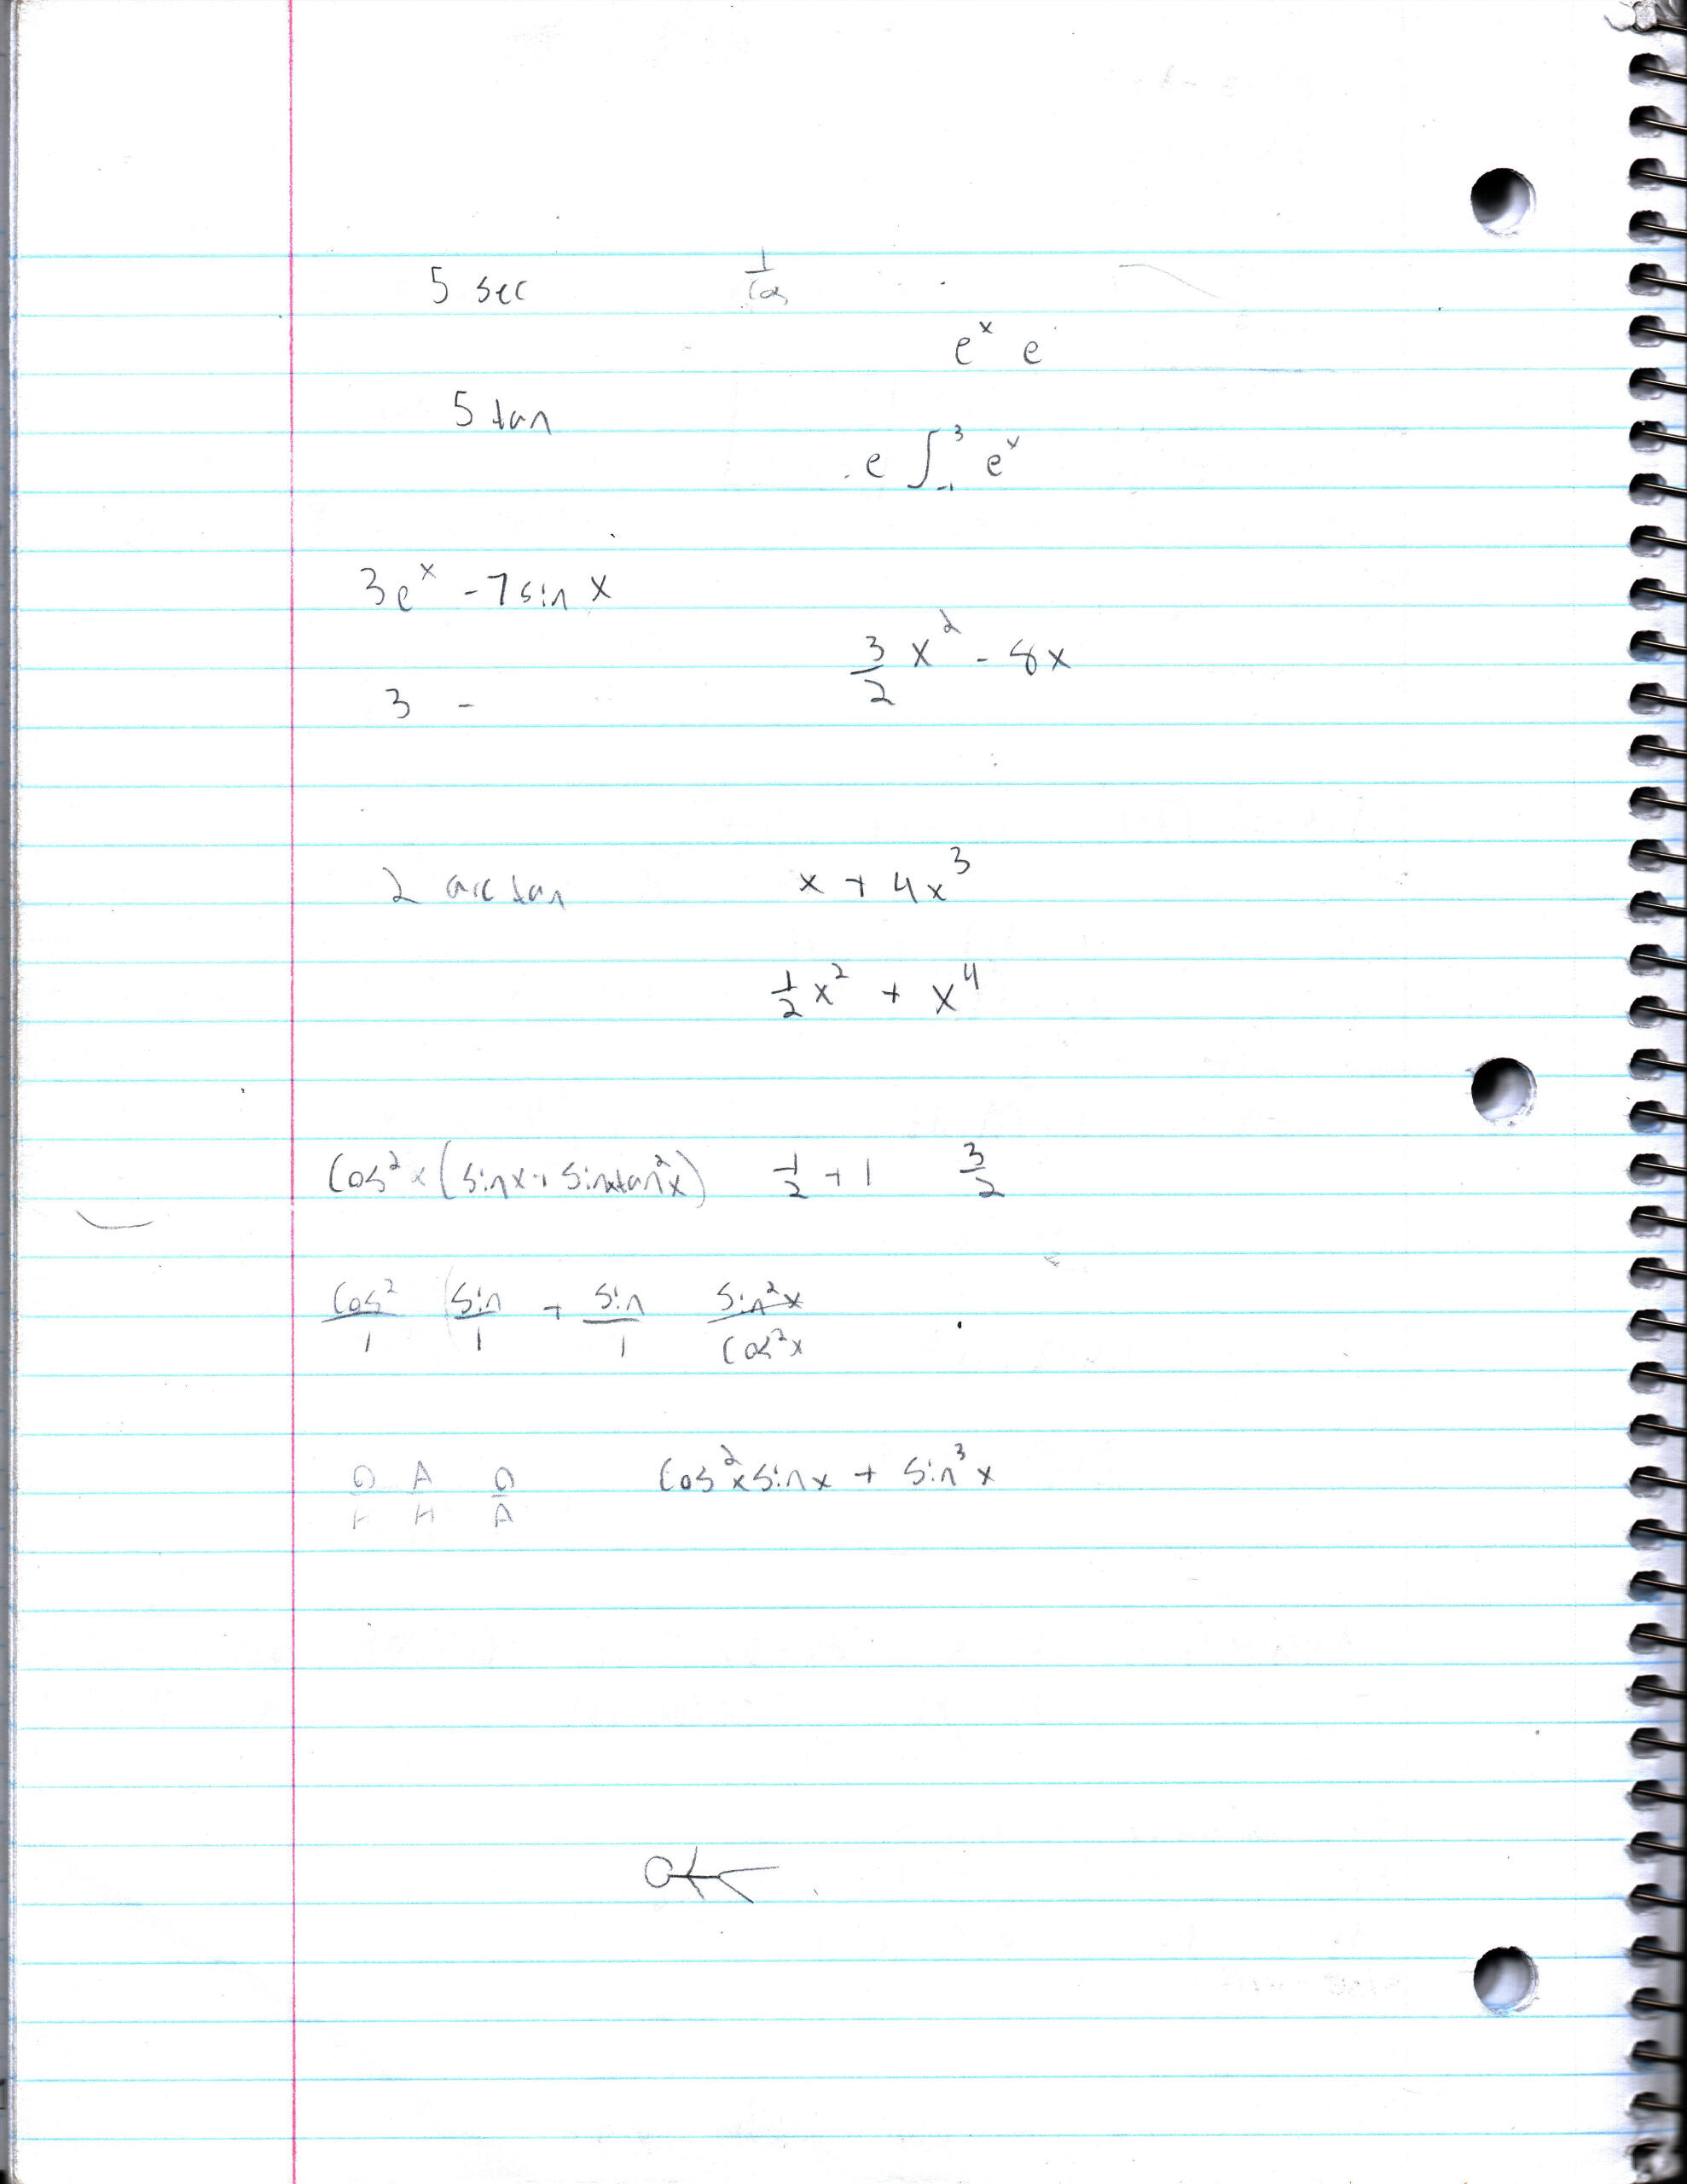 5 sec 1/cos
eˣ e
5 tan
e ∫₋₁³ eˣ
3eˣ - 7 sin x
3/2 x² - 8x
3 -
2 arctan x + 4x³
1/2 x² + x⁴
cos² x (sin x + sin x tan² x) 1/2 + 1 3/2
cos²/1 (sin/1 + sin/1 sin² x/cos² x
O/H A/H O/A cos² x sin x + sin³ x